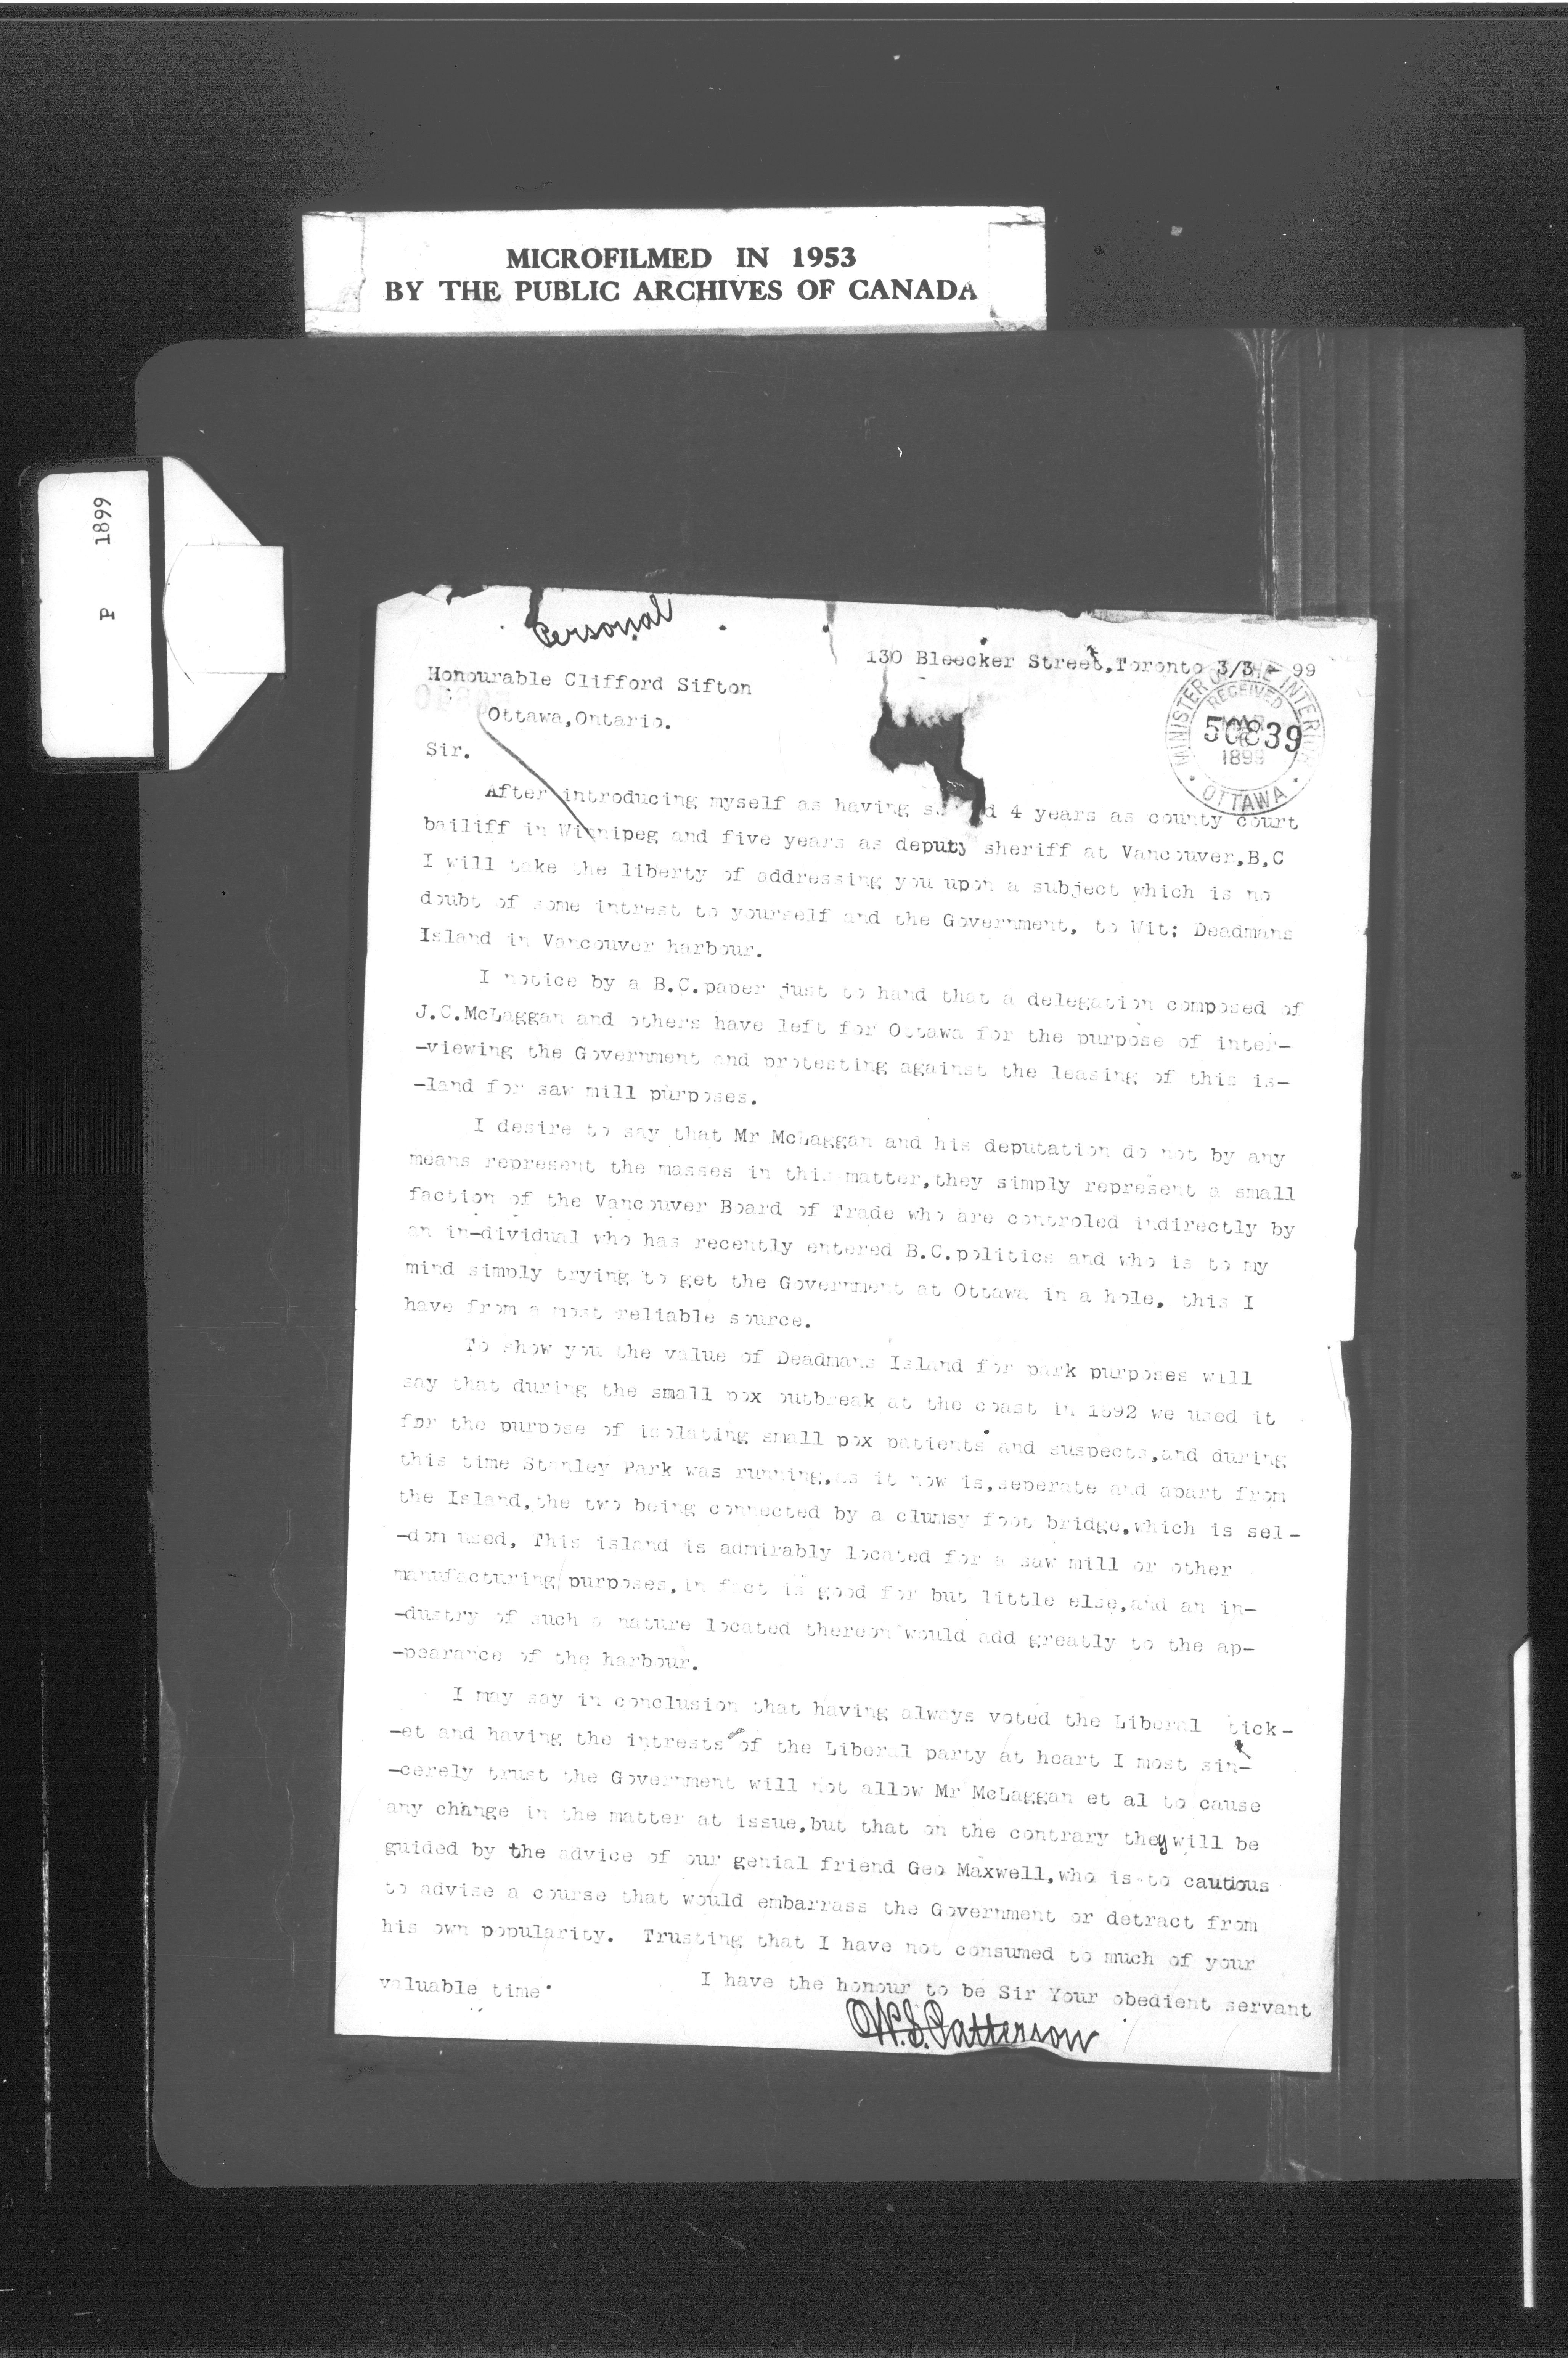 MICROFILMED IN 1953
BY THE PUBLIC ARCHIVES OF CANADA
P 1899
Personal
130 Bleecker Street,Toronto 3/3 - 99
Honourable Clifford Sifton
Ottawa,Ontario.
MINISTER OF THE INTERIOR
RECEIVED
MAR
50839
1899
OTTAWA
Sir.
After introducing myself as having s d 4 years as county court
bailiff in Winnipeg and five years as deputy sheriff at Vancouver,B,C
I will take the liberty of addressing you upon a subject which is no
doubt of some intrest to yourself and the Government, to Wit; Deadmans
Island in Vancouver harbour.
I notice by a B.C.paper just to hand that a delegation composed of
J.C.McLaggan and others have left for Ottawa for the purpose of inter-
-viewing the Government and protesting against the leasing of this is-
-land for saw mill purposes.
I desire to say that Mr McLaggan and his deputation do not by any
means represent the masses in this matter,they simply represent a small
faction of the Vancouver Board of Trade who are controled indirectly by
an in-dividual who has recently entered B.C.politics and who is to my
mind simply trying to get the Government at Ottawa in a hole, this I
have from a most reliable source.
To show you the value of Deadmans Island for park purposes will
say that during the small pox outbreak at the coast in 1892 we used it
for the purpose of isolating small pox patients and suspects,and during
this time Stanley Park was running,as it now is,seperate and apart from
the Island,the two being connected by a clumsy foot bridge,which is sel-
-dom used, This island is admirably located for a saw mill or other
manufacturing purposes,in fact is good for but little else,and an in-
-dustry of such a nature located thereon would add greatly to the ap-
-pearance of the harbour.
I may say in conclusion that having always voted the Liberal tick-
-et and having the intrests of the Liberal party at heart I most sin-
-cerely trust the Government will not allow Mr McLaggan et al to cause
any change in the matter at issue,but that on the contrary they will be
guided by the advice of our genial friend Geo Maxwell,who is to cautious
to advise a course that would embarrass the Government or detract from
his own popularity. Trusting that I have not consumed to much of your
valuable time
I have the honour to be Sir Your obedient servant
W.S.Patterson